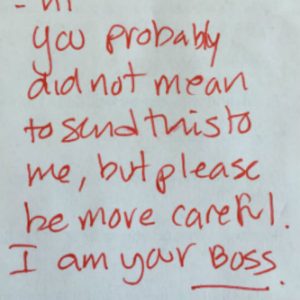 - Hi
you probably
did not mean
to send this to
me, but please
be more careful.
I am your Boss.